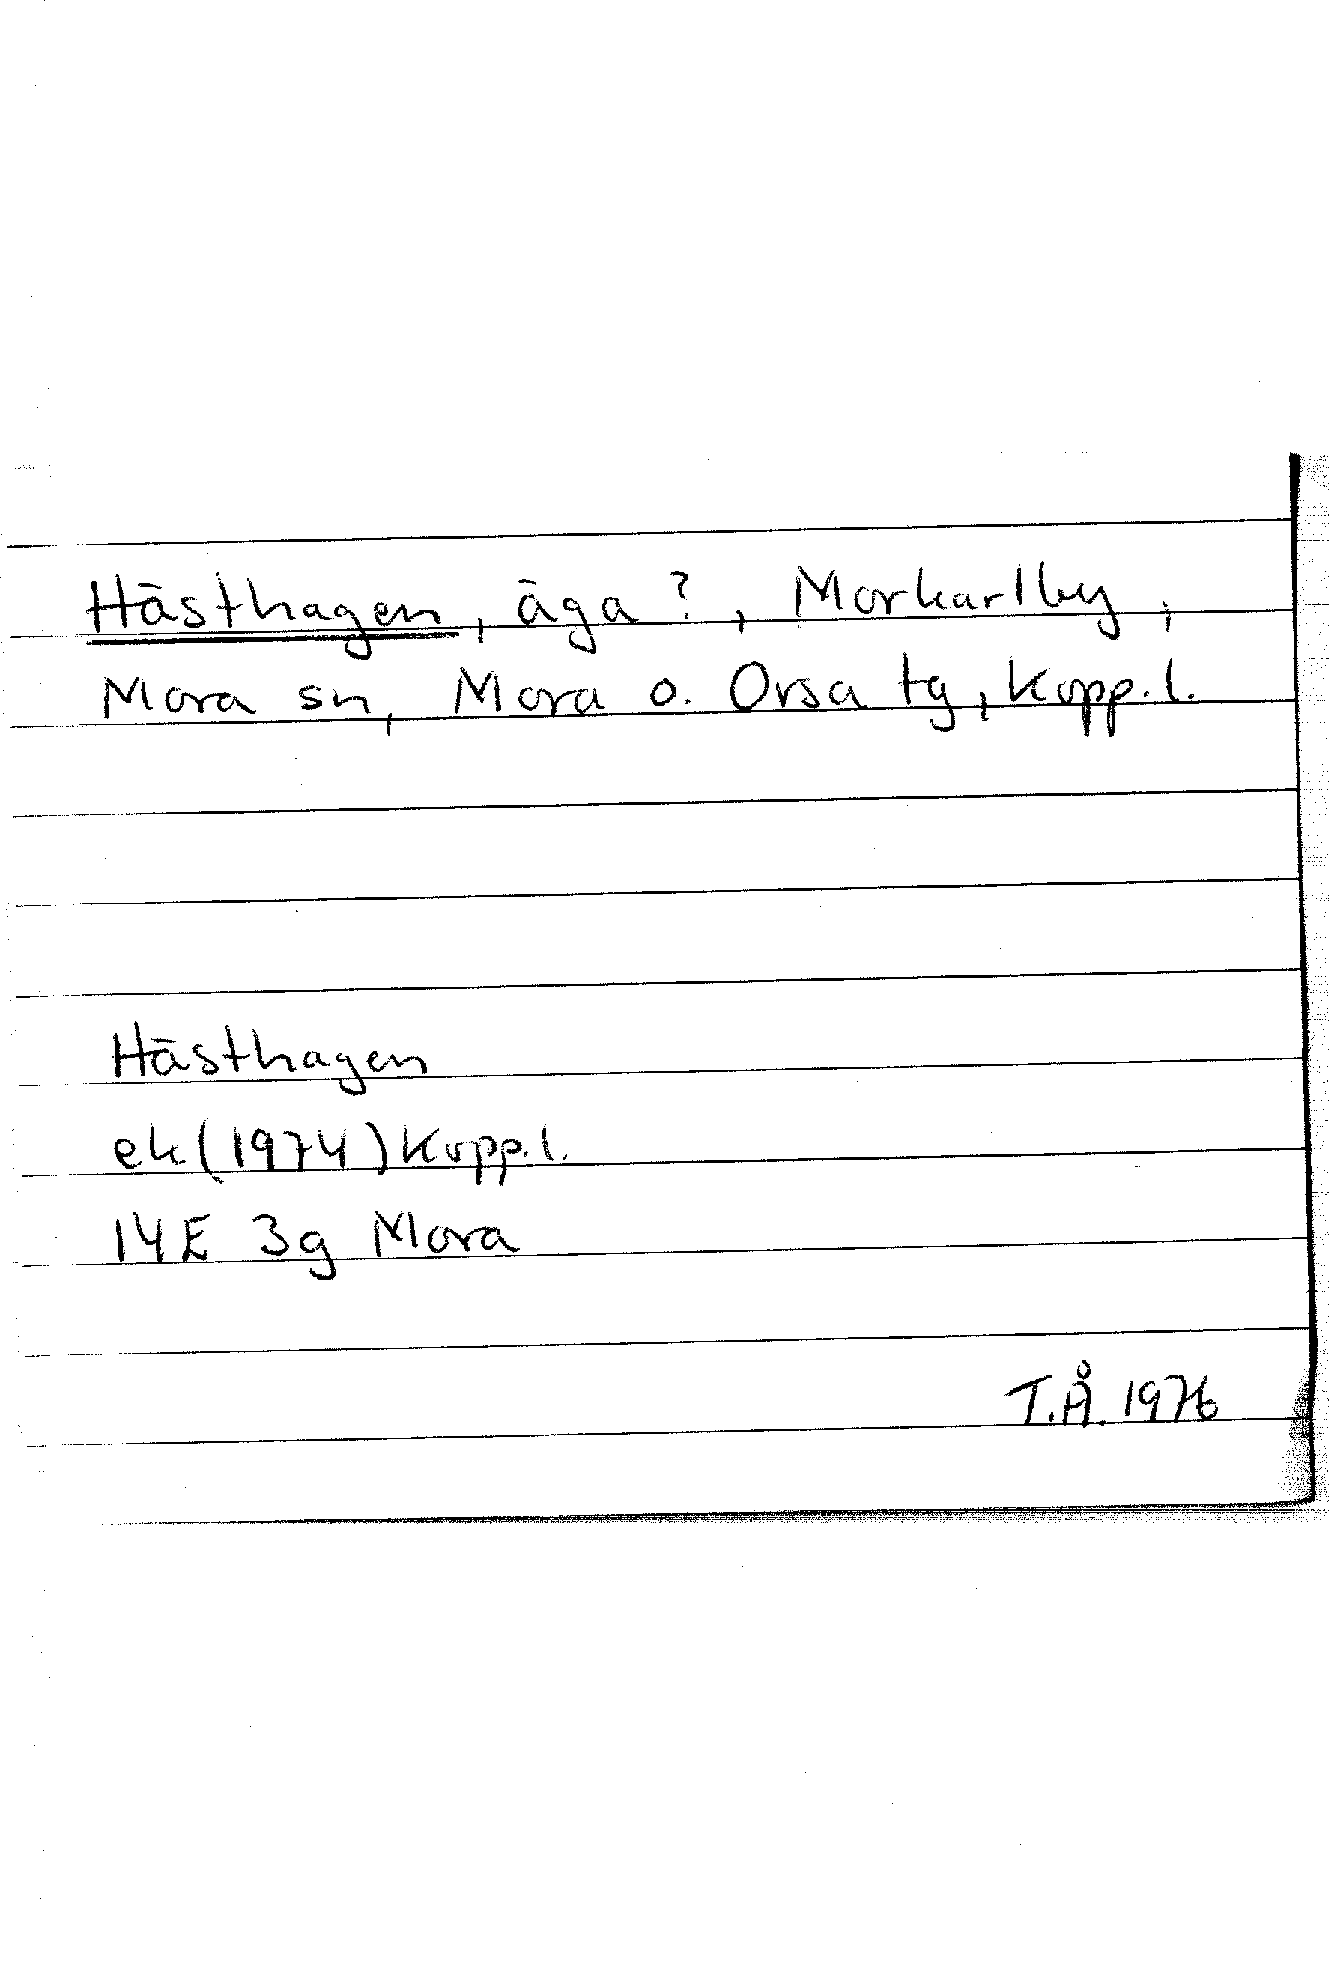 Hästhagen, äga?, Morkarlby,
Mora sn, Mora o. Orsa tg, Kopp.l.
Hästhagen
ek (1974) Kopp.l.
14E 3g Mora
T.Å. 1976